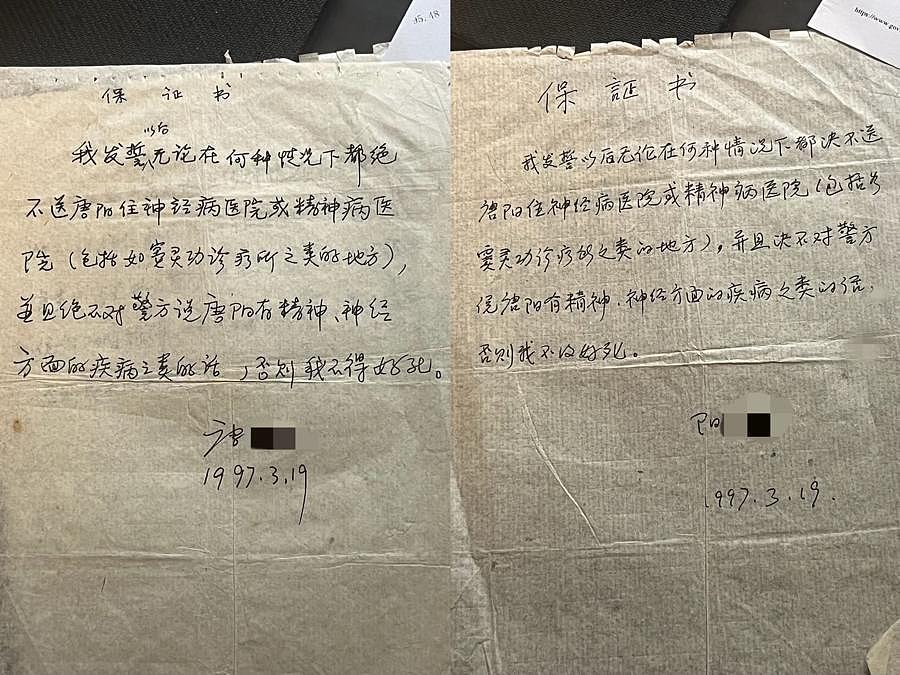 45.48
保 证 书
以后
我发誓,无论在何种情况下都绝
不送唐阳住神经病医院或精神病医
院(包括如窦灵功诊疗所之类的地方),
并且绝不对警方说唐阳有精神、神经
方面的疾病之类的话,否则我不得好死。
唐
1997.3.19
https://www.gov
保 証 书
我发誓以后无论在何种情况下都决不送
唐阳住神经病医院或精神病医院(包括
窦灵功诊疗所之类的地方)。并且决不对警方
说唐阳有精神、神经方面的疾病之类的话,
否则我不得好死。
阳
1997.3.19.